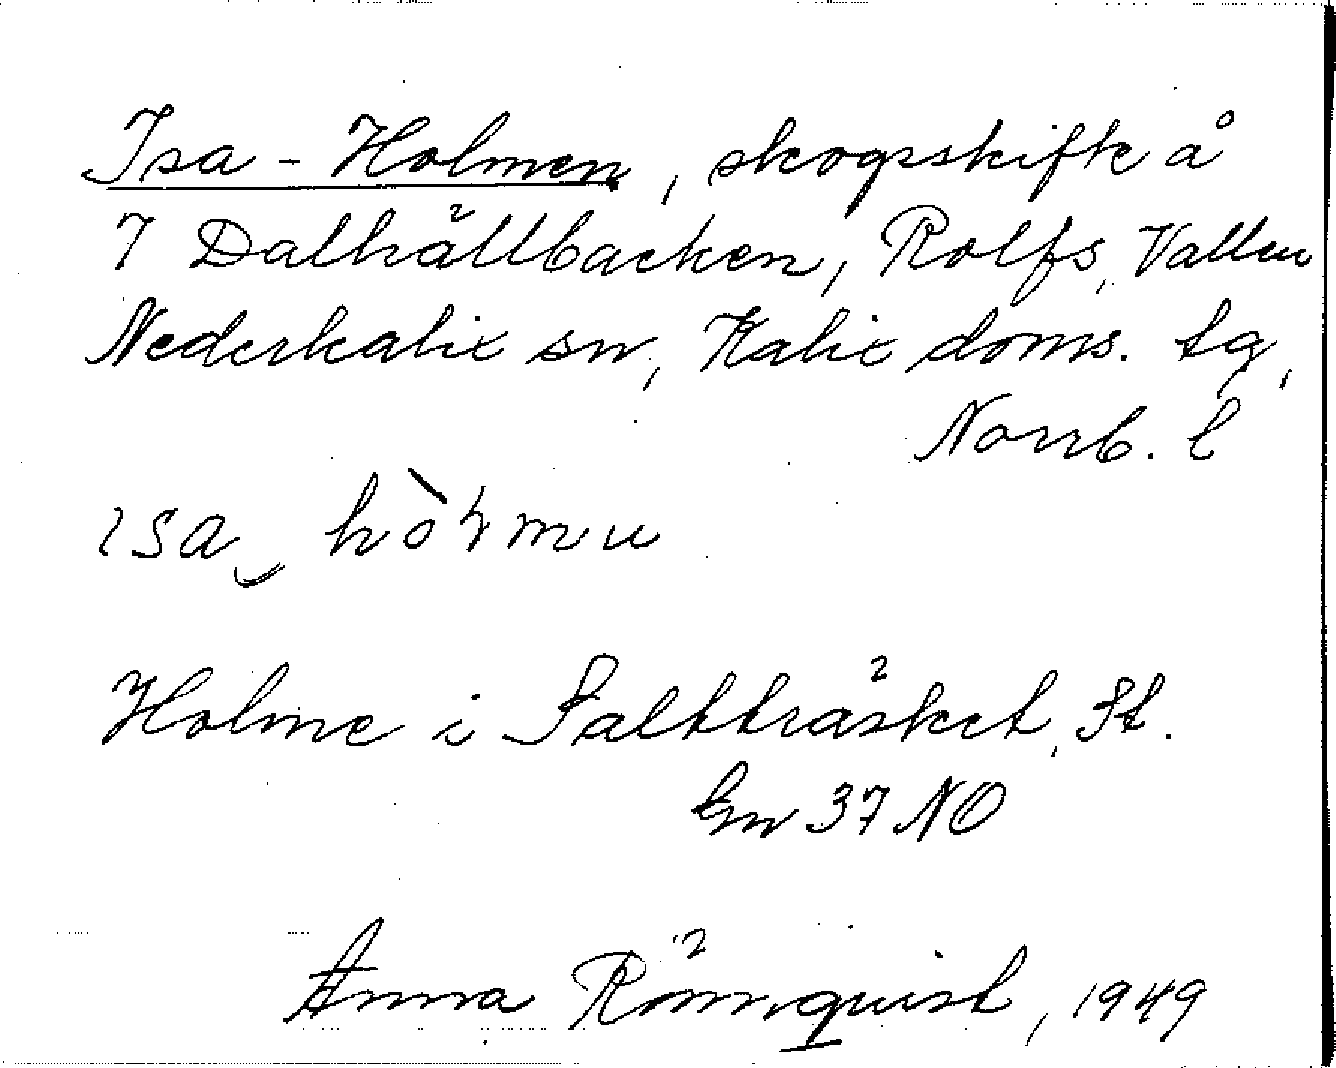 Isa-Holmen, skogsskifte å
7 Dalhällbacken, Rolfs, Vallen
Nederkalix sn, Kalix doms. tg,
Norrb. l
ısa‿ hòɽmu
Holme i Saltträsket, St.
Gn 37 NO
Anna Rönnquist, 1949